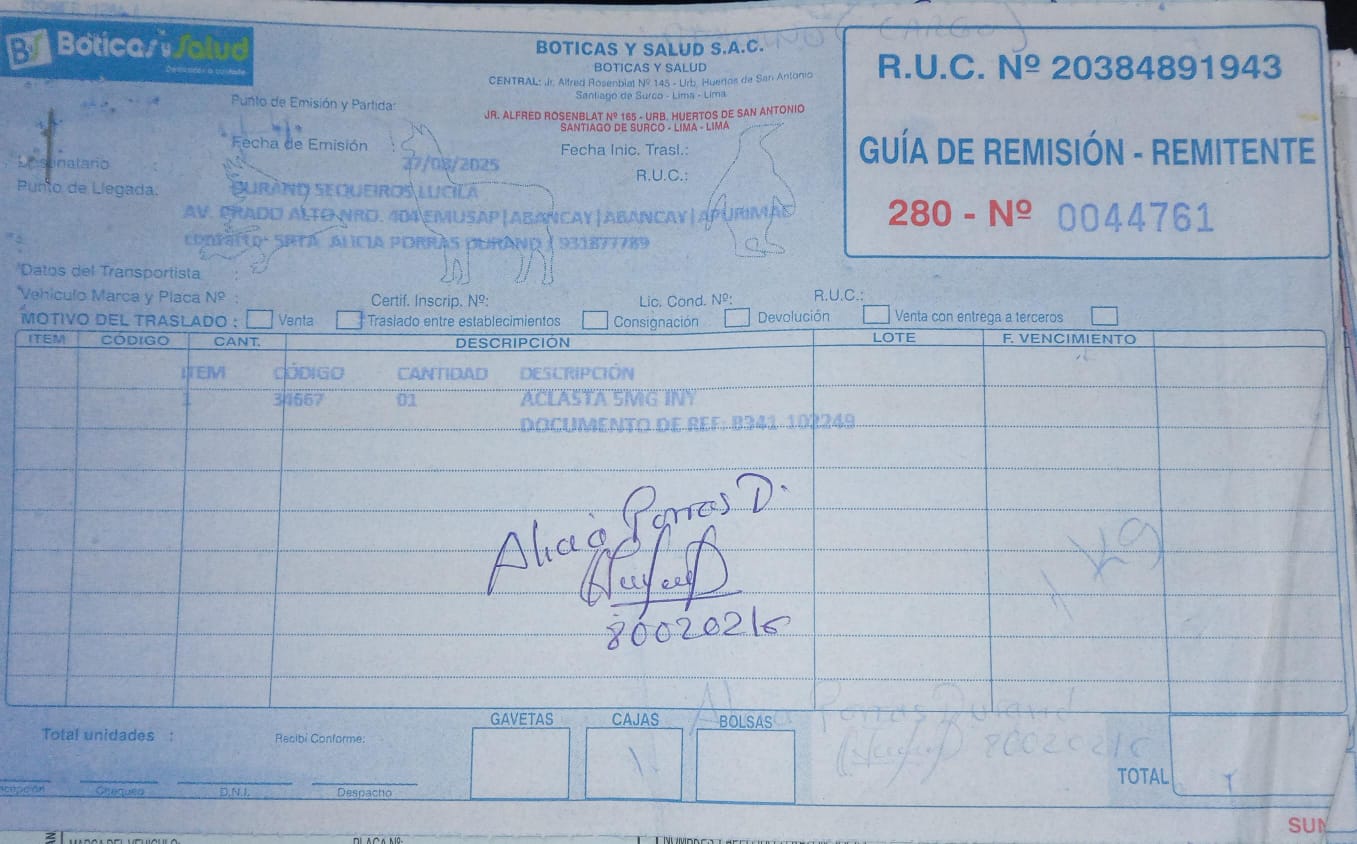 BS Boticas y Salud
Dedicados a cuidarte
BOTICAS Y SALUD S.A.C.
BOTICAS Y SALUD
CENTRAL: Jr. Alfred Rosenblat Nº 145 - Urb. Huertos de San Antonio
Santiago de Surco - Lima - Lima
JR. ALFRED ROSENBLAT Nº 165 - URB. HUERTOS DE SAN ANTONIO
SANTIAGO DE SURCO - LIMA - LIMA
(CARGO)
R.U.C. Nº 20384891943
GUÍA DE REMISIÓN - REMITENTE
280 - Nº 0044761
Punto de Emisión y Partida:
Fecha de Emisión :
Fecha Inic. Trasl.:
27/08/2025
Destinatario
R.U.C.:
Punto de Llegada:
DURAND SEQUEIROS LUCILA
AV. PRADO ALTO NRO. 404 EMUSAP|ABANCAY|ABANCAY|APURIMAC
contacto- SRTA ALICIA PORRAS DURAND / 931877789
Datos del Transportista :
Vehículo Marca y Placa Nº : Certif. Inscrip. Nº: Lic. Cond. Nº: R.U.C.:
MOTIVO DEL TRASLADO : Venta Traslado entre establecimientos Consignación Devolución Venta con entrega a terceros
ITEM CÓDIGO CANT. DESCRIPCIÓN LOTE F. VENCIMIENTO
ITEM CÓDIGO CANTIDAD DESCRIPCIÓN
1 34667 01 ACLASTA 5MG INY
DOCUMENTO DE REF: B341 102249
Alicia Porras D.
80020216
1 Kg
GAVETAS CAJAS BOLSAS
Alicia Porras Durand
80020216
Total unidades :
Recibí Conforme:
1
TOTAL
Chequeo D.N.I. Despacho
SUN
MARCA DEL VEHICULO: PLACA Nº: